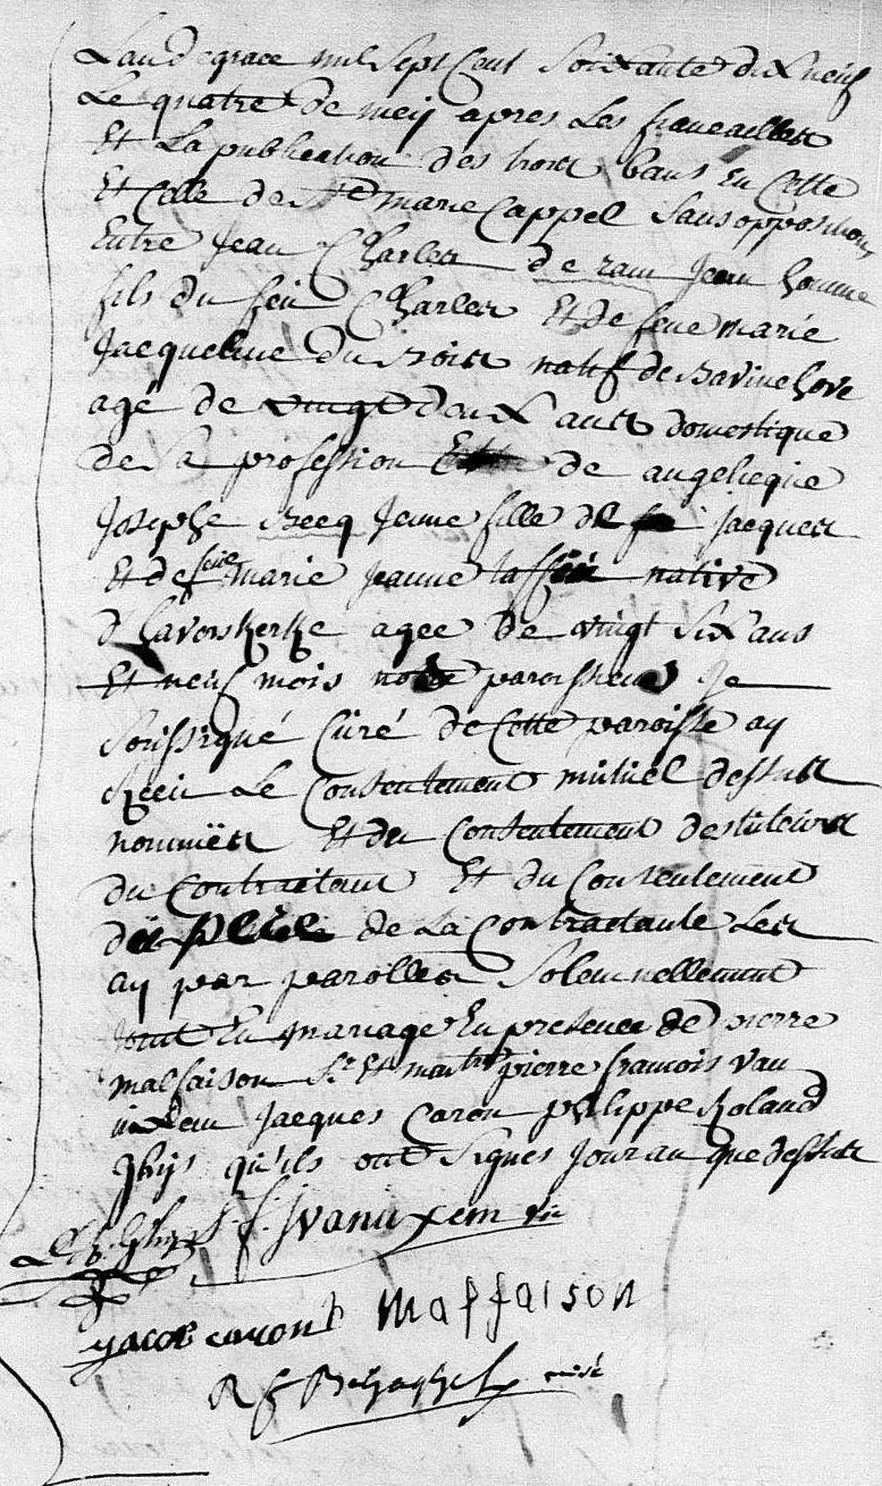 L'an de grace mil sept cent soixante dix neuf
Le quatre de meij apres Les fianeailles
Et La publication des trois bans en Cette
Et Celle de Ste marie Cappel sans opposition
Entre Jean Charles de ram Jeun homme
fils du feu Charles Et de feue marie
Jacqueline du Bois natif de Bavinchove
agé de vingt deux ans domestique
de sa profession de angelicque
Josephe Becq Jeune fille de jacques
Et de feue marie jeanne native
d'haverskerke agee de vingt six ans
Et neuf mois paroissiens Je
soussigné Curé de Cette paroisse ay
Receu Le Consentement mutuel dessus
nommés Et du Consentement des tuteurs
du Contractant Et du Consentement
du pere de La Contractante Les
ay par parolles solemnellement
Joint En mariage En presence de pierre
malfaison Sr Et pierre francois van
Jacques Caron philippe Roland
Ghijs qu'ils ont signes jour an que dessus
vanuxem
jacob caront Malfaison
R f curé